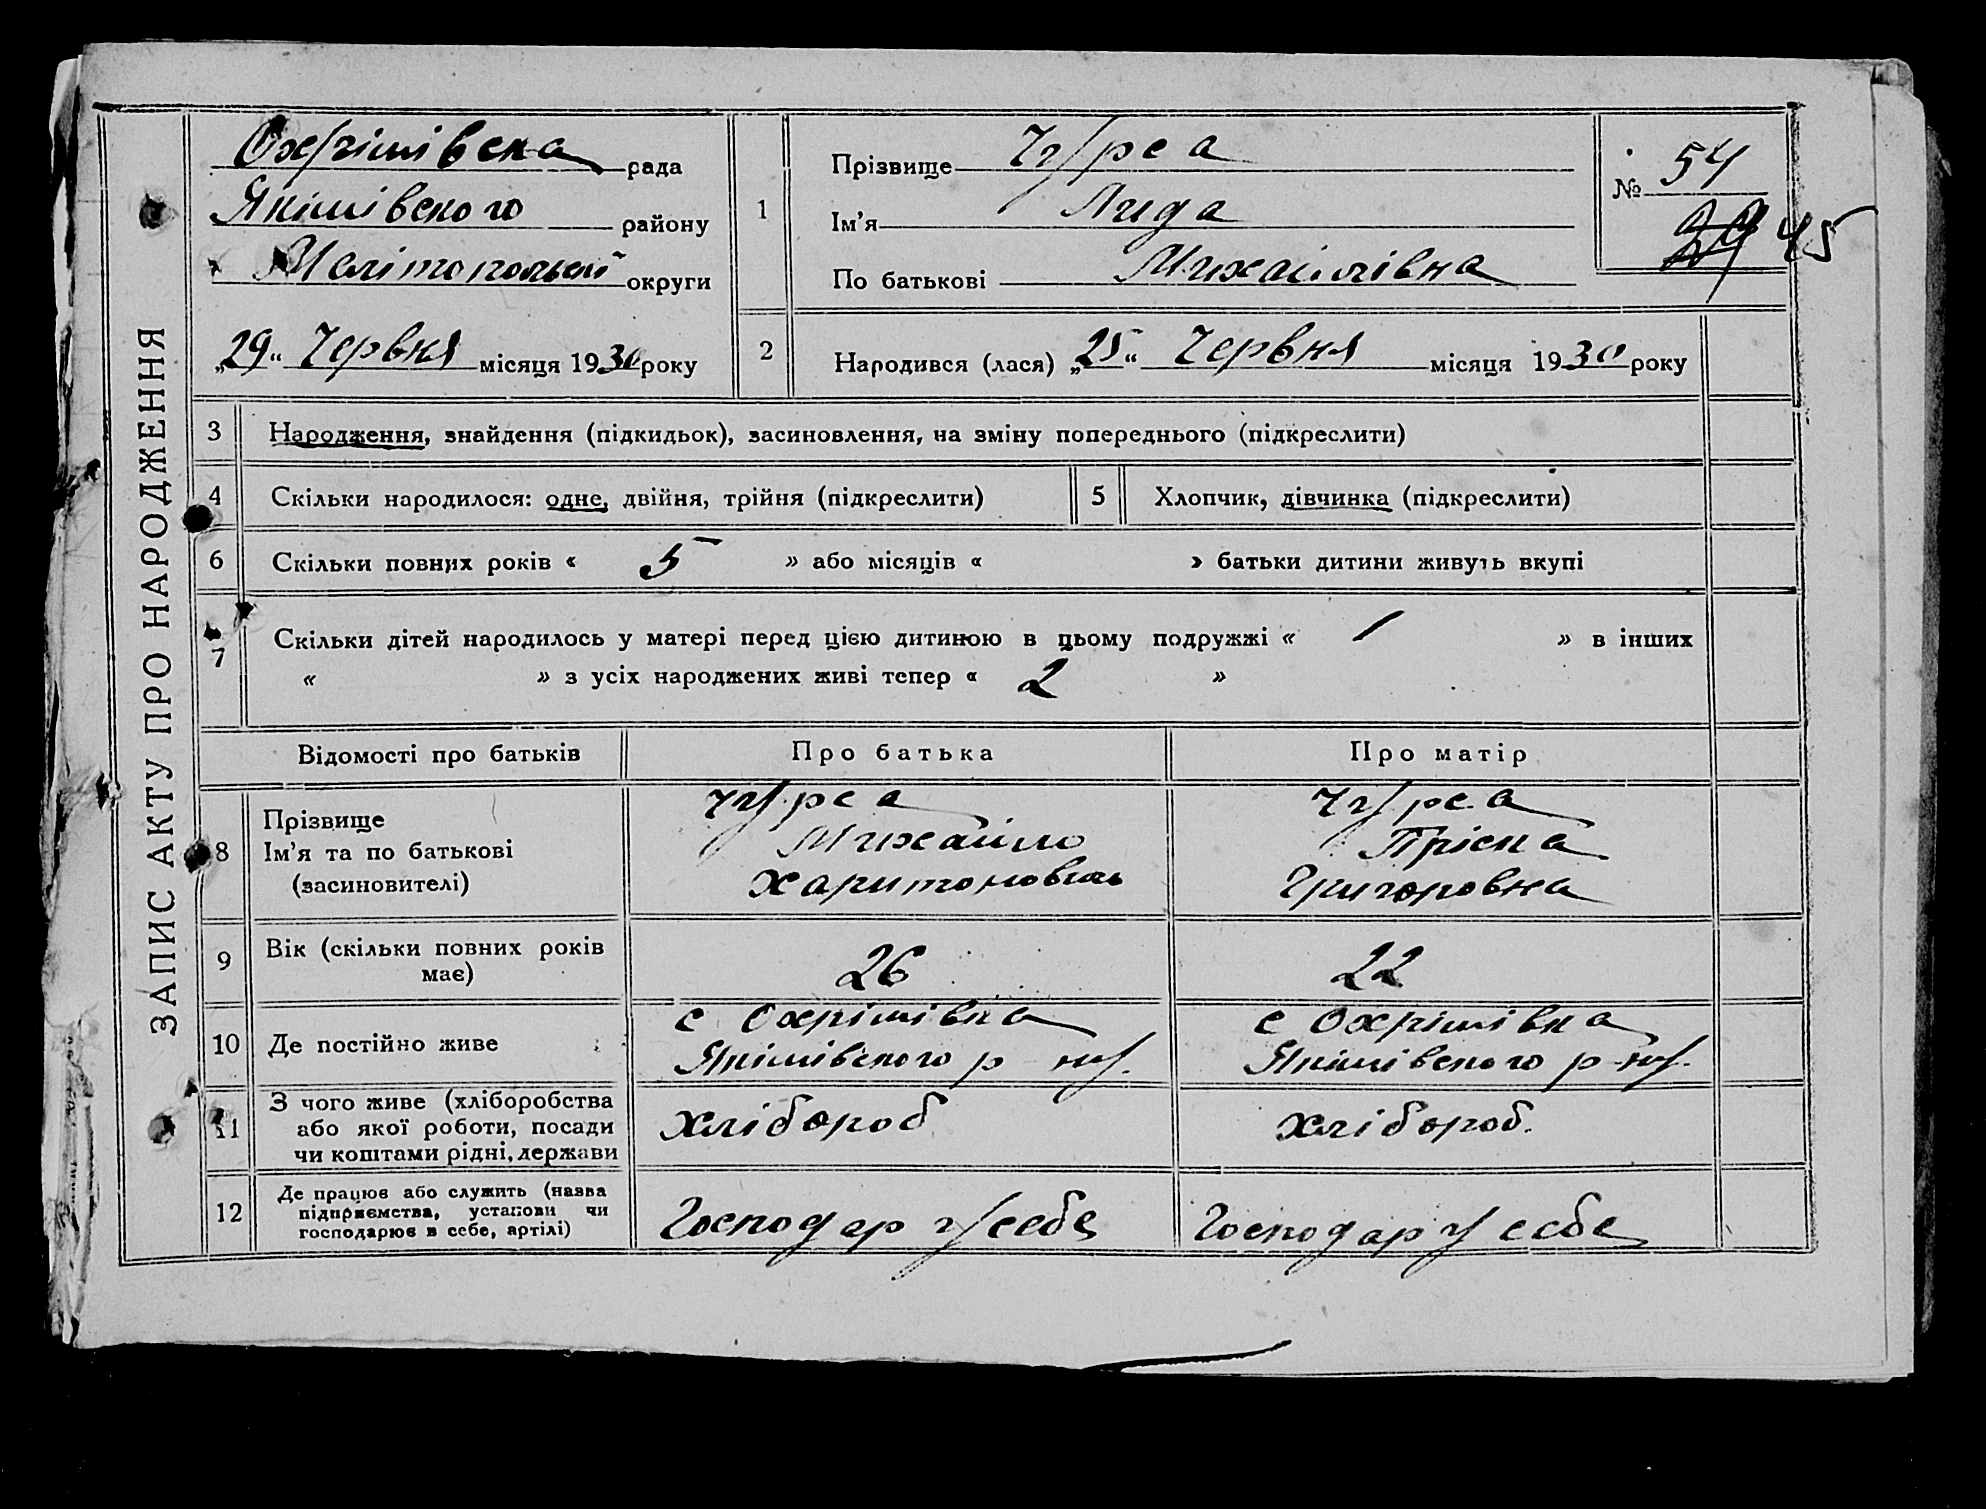 ЗАПИС АКТУ ПРО НАРОДЖЕННЯ
Охрімівска рада
Якімівского району
Мелітопольскої округи
„29“ Червня місяця 1930 року
1
Прізвище Чурса
Ім'я Лида
По батькові Михайлівна
№ 54
45
2
Народився (лася) „25“ Червня місяця 1930 року
3 Народження, знайдення (підкидьок), засиновлення, на зміну попереднього (підкреслити)
4 Скільки народилося: одне, двійня, трійня (підкреслити)
5 Хлопчик, дівчинка (підкреслити)
6 Скільки повних років « 5 » або місяців « » батьки дитини живуть вкупі
7 Скільки дітей народилось у матері перед цією дитиною в цьому подружжі « 1 » в інших
« » з усіх народжених живі тепер « 2 »
Відомості про батьків Про батька Про матір
8 Прізвище
Ім'я та по батькові
(засиновителі)
Чурса
Михайло
Харитонович
Чурса
Григоровна
9 Вік (скільки повних років
має)
26
22
10 Де постійно живе
с Охрімівка
Якімівского р-ну.
с Охрімівка
Якімівского р-ну.
11 З чого живе (хліборобства
або якої роботи, посади
чи коштами рідні, держави
хлібороб
хлібороб.
12 Де працює або служить (назва
підприємства, установи чи
господарює в себе, артілі)
Господар у себе
Господар у себе